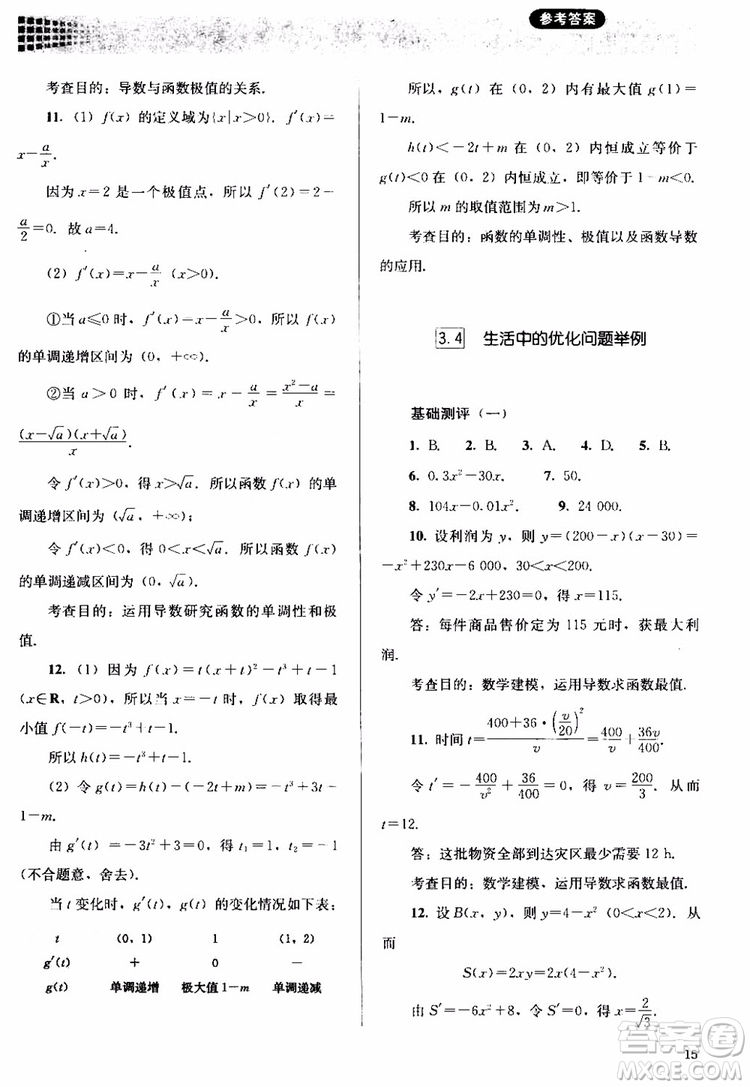 参考答案
考查目的：导数与函数极值的关系.
11. (1) f(x) 的定义域为{x|x＞0}. f′(x)=
x−a/x.
因为 x=2 是一个极值点，所以 f′(2)=2−
a/2=0. 故 a=4.
(2) f′(x)=x−a/x (x＞0).
①当 a≤0 时，f′(x)=x−a/x＞0，所以 f(x)
的单调递增区间为 (0，+∞)；
②当 a＞0 时，f′(x)=x−a/x=(x²−a)/x=
(x−√a)(x+√a)/x.
令 f′(x)＞0，得 x＞√a. 所以函数 f(x) 的单
调递增区间为 (√a，+∞)；
令 f′(x)＜0，得 0＜x＜√a. 所以函数 f(x)
的单调递减区间为 (0，√a).
考查目的：运用导数研究函数的单调性和极
值.
12. (1) 因为 f(x)=t(x+t)²−t³+t−1
(x∈R，t＞0)，所以当 x=−t 时，f(x) 取得最
小值 f(−t)=−t³+t−1.
所以 h(t)=−t³+t−1.
(2) 令 g(t)=h(t)−(−2t+m)=−t³+3t−
1−m.
由 g′(t)=−3t²+3=0，得 t₁=1，t₂=−1
(不合题意，舍去).
当 t 变化时，g′(t)，g(t) 的变化情况如下表：
t (0，1) 1 (1，2)
g′(t) + 0 −
g(t) 单调递增 极大值 1−m 单调递减
所以，g(t) 在 (0，2) 内有最大值 g(1)=
1−m.
h(t)＜−2t+m 在 (0，2) 内恒成立等价于
g(t)＜0 在 (0，2) 内恒成立，即等价于 1−m＜0.
所以 m 的取值范围为 m＞1.
考查目的：函数的单调性、极值以及函数导数
的应用.
3.4 生活中的优化问题举例
基础测评（一）
1. B. 2. B. 3. A. 4. D. 5. B.
6. 0.3x²−30x. 7. 50.
8. 104x−0.01x². 9. 24 000.
10. 设利润为 y，则 y=(200−x)(x−30)=
−x²+230x−6 000，30＜x＜200.
令 y′=−2x+230=0，得 x=115.
答：每件商品售价定为 115 元时，获最大利
润.
考查目的：数学建模，运用导数求函数最值.
11. 时间 t=(400+36·(v/20)²)/v=400/v+36v/400.
令 t′=−400/v²+36/400=0，得 v=200/3. 从而
t=12.
答：这批物资全部到达灾区最少需要 12 h.
考查目的：数学建模，运用导数求函数最值.
12. 设 B(x，y)，y=4−x² (0＜x＜2). 从
而
S(x)=2xy=2x(4−x²).
由 S′=−6x²+8，令 S′=0，得 x=2/√3.
15
答案圈
MXQE.COM